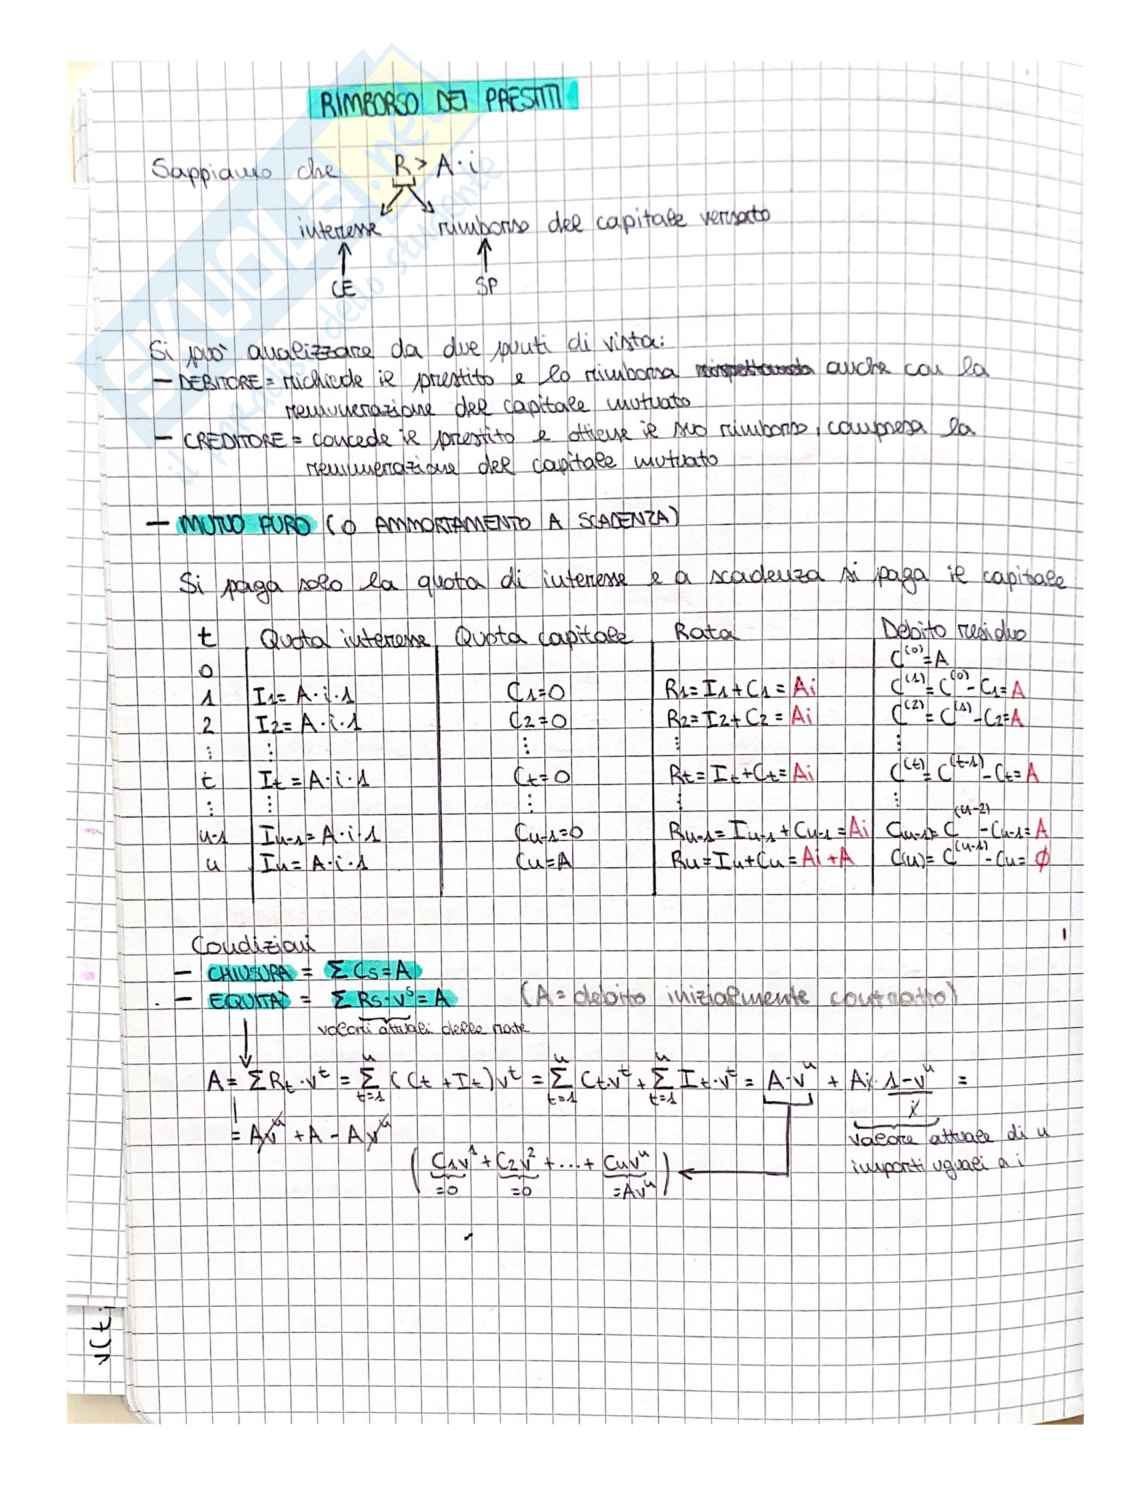 RIMBORSO DEI PRESTITI
Sappiamo che R > A·i
interesse rimborso del capitale versato
CE SP
Si può analizzare da due punti di vista:
— DEBITORE = richiede il prestito e lo rimborsa anche con la
remunerazione del capitale mutuato
— CREDITORE = concede il prestito e ottiene il suo rimborso, compresa la
remunerazione del capitale mutuato
— MUTUO PURO (O AMMORTAMENTO A SCADENZA)
Si paga solo la quota di interesse e a scadenza si paga il capitale
t Quota interesse Quota capitale Rata Debito residuo
0 C^(0) = A
1 I1 = A·i·1 C1=0 R1 = I1 + C1 = Ai C^(1) = C^(0) - C1 = A
2 I2 = A·i·1 C2=0 R2 = I2 + C2 = Ai C^(2) = C^(1) - C2 = A
⋮ ⋮ ⋮ ⋮ ⋮
t It = A·i·1 Ct=0 Rt = It + Ct = Ai C^(t) = C^(t-1) - Ct = A
⋮ ⋮ ⋮ ⋮ ⋮
n-1 In-1 = A·i·1 Cn-1=0 Rn-1 = In-1 + Cn-1 = Ai Cn-1 = C^(n-2) - Cn-1 = A
n In = A·i·1 Cn=A Rn = In + Cn = Ai + A C(n) = C^(n-1) - Cn = ∅
Condizioni
— CHIUSURA = Σ Cs = A
— EQUITÀ = Σ Rs·v^s = A (A = debito inizialmente contratto)
valori attuali delle rate
A = Σ Rt·v^t = Σ_{t=1}^{n} (Ct + It) v^t = Σ_{t=1}^{n} Ct·v^t + Σ_{t=1}^{n} It·v^t = A·v^n + Ai · (1-v^n)/i =
= Av^n + A - Av^n
valore attuale di n
importi uguali a i
(C1v^1 + C2v^2 + ... + Cnv^n)
=0 =0 =Av^n
v(t,
SKUOLA.net
il portale dello studente